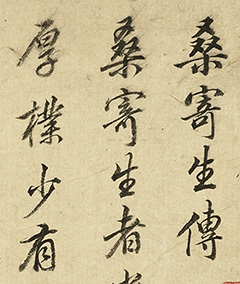 桑寄生傳
桑寄生者
厚樸少有